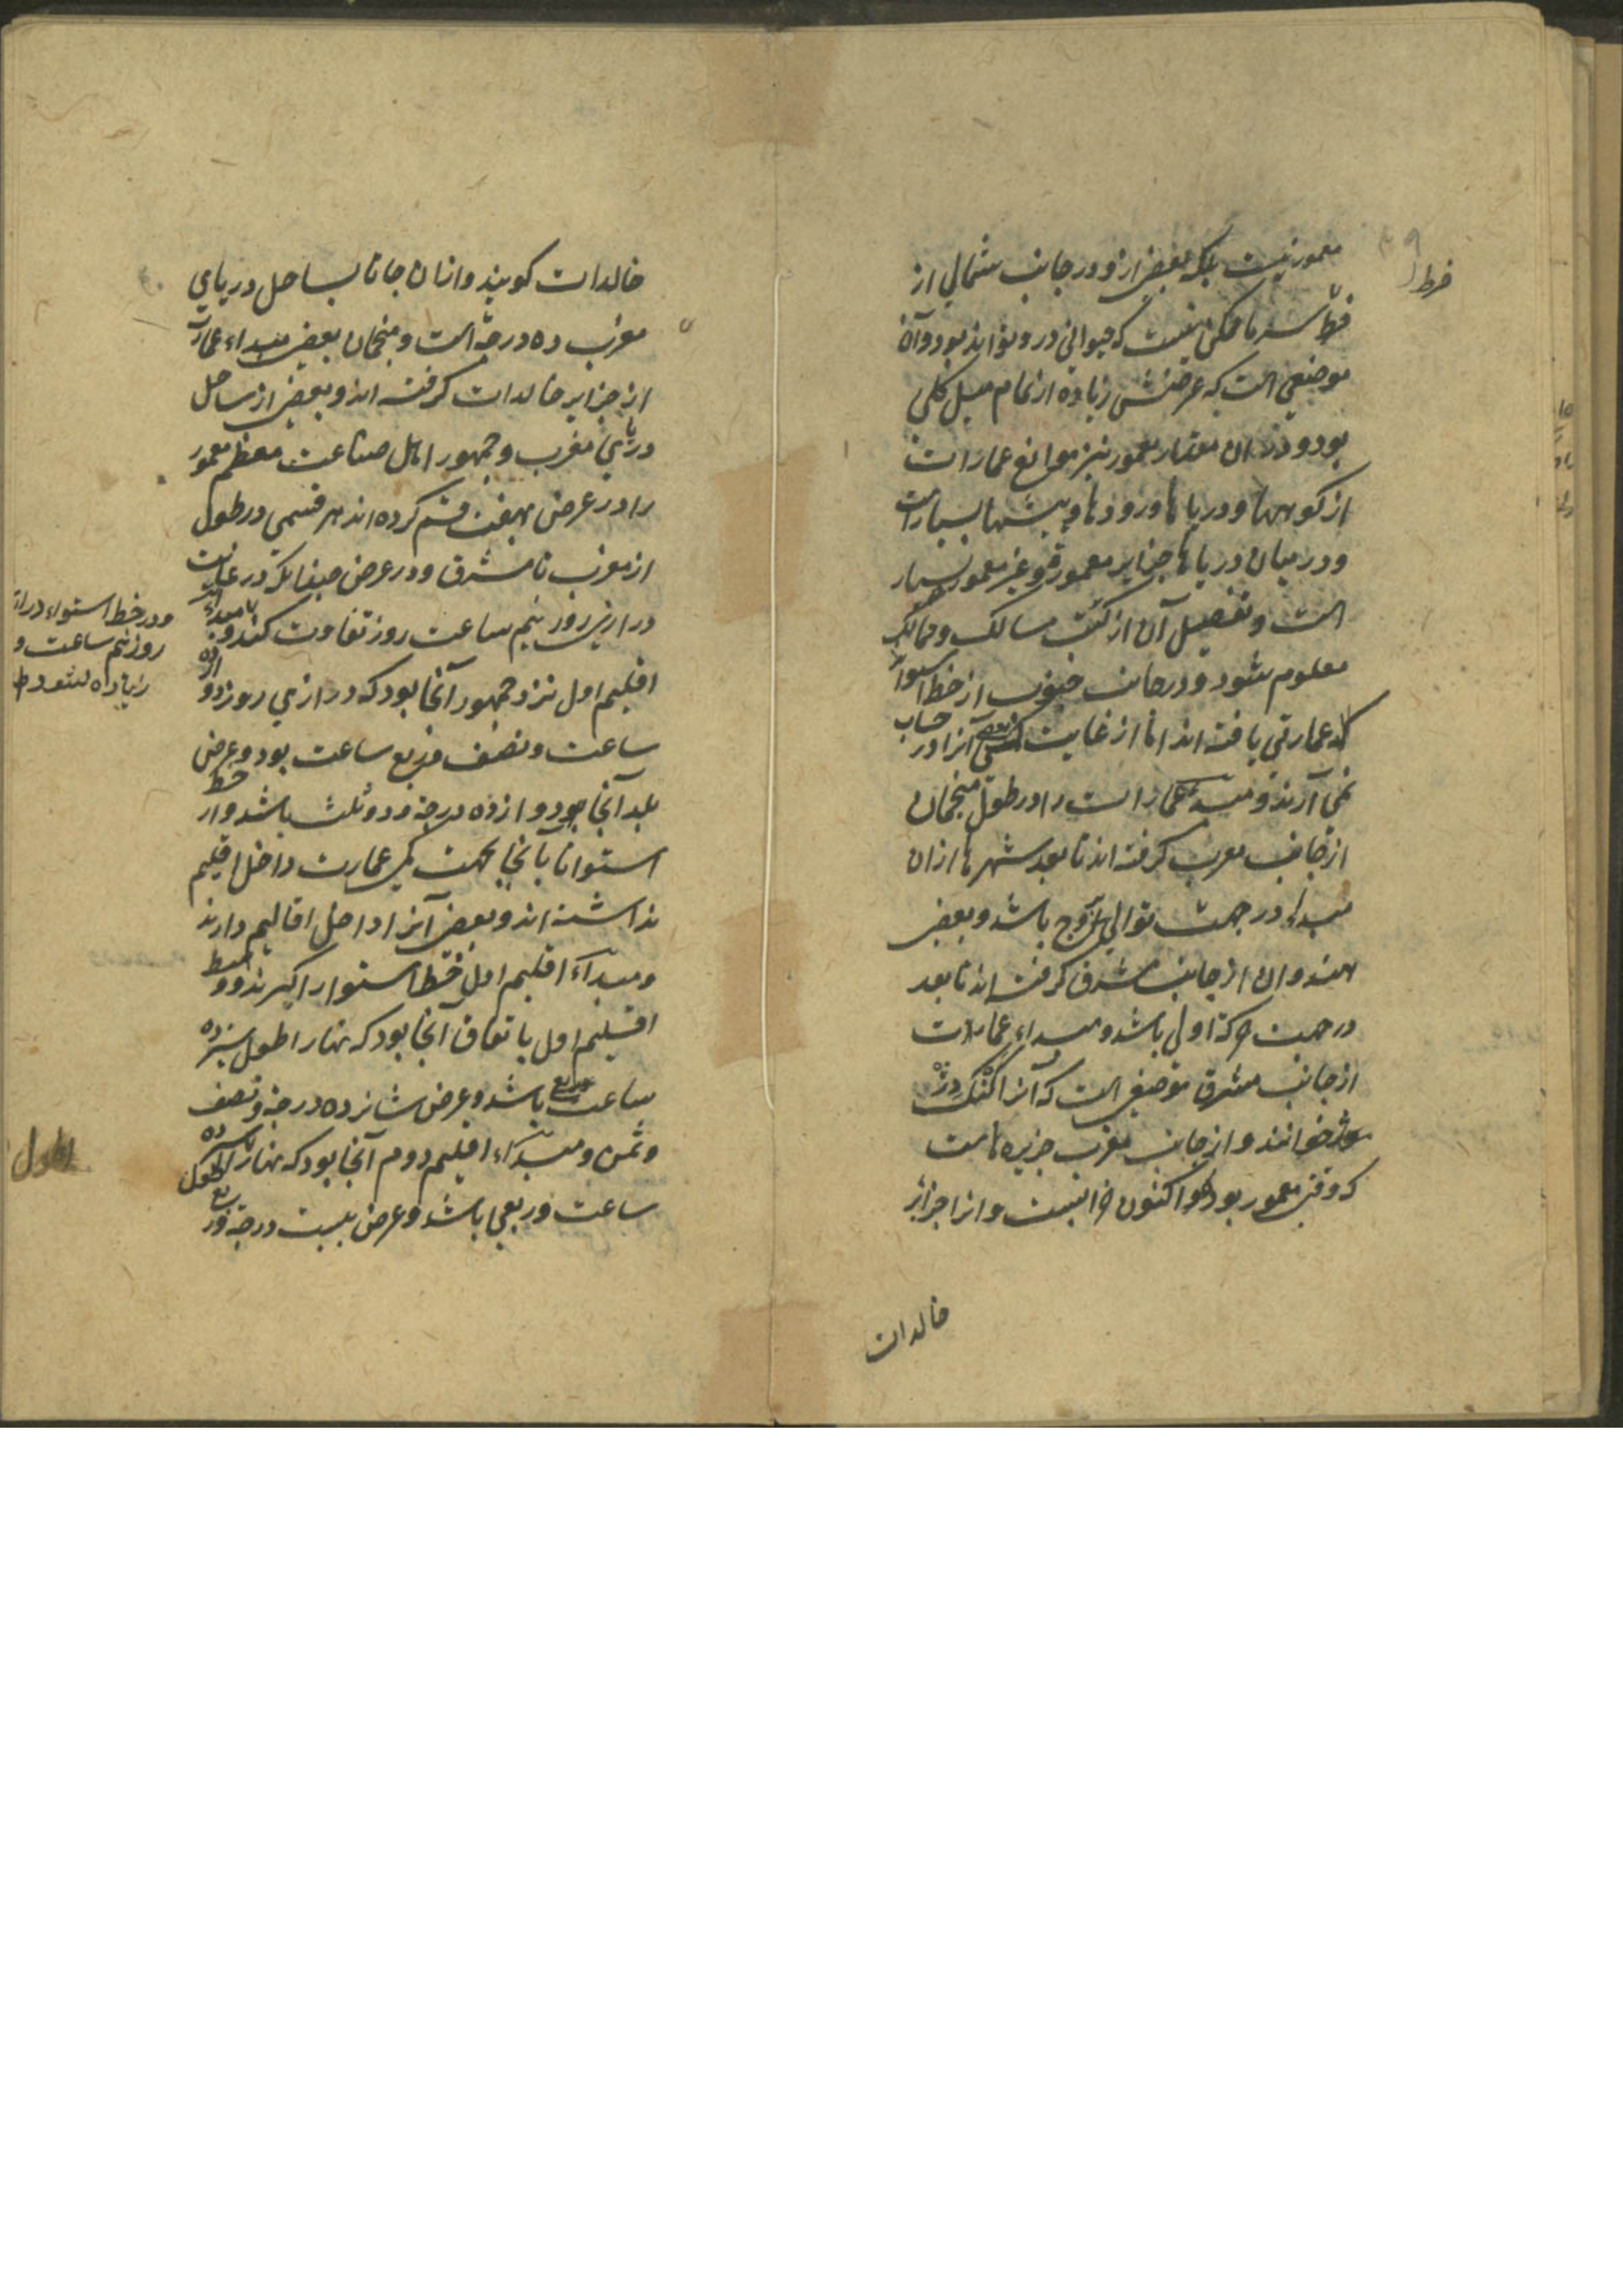 معمور نیست بلکه بعضی ازو در جانب شمالی از
فرط
فرط سرما ممکن نیست که حیوانی درو تواند بود و آن
موضعی است که عرضش زیاده از تمام میل کلی
بود و در ان مقدار معمور نیز موانع عمارات
از کوهها و دریاها و رودها و بیشها بسیار است
و در میان دریاها جزایر معمور و غیر معمور بسیار
است و تفصیل آن از کتب مسالک و ممالک
معلوم شود و در جانب جنوب از خط استوا
عمارتی یافته اند اما از غایت آنرا در حساب
نمی آرند و مبدء عمارات را در طول منجمان
از جانب مغرب کرفته اند تا بعد شهرها ازان
مبداء در جهت توالی بروج باشد و بعضی
هندوان از جانب مشرق کرفته اند تا بعد
در جهت حرکة اولی باشد و مبداء عمارات
از جانب مشرق موضعی است که آنرا کنک دژ
خوانند و از جانب مغرب جزیره هاست
که وقتی معمور بوده و اکنون خرابست و انرا جزائر
خالدات
خالدات کویند و ازان جا تا بساحل دریای
مغرب ده درجه است و منجمان بعضی مبداء عمارت
از جزایر خالدات کرفته اند و بعضی از ساحل
دریای مغرب و جمهور اهل صناعت معظم معمور
را در عرض بهفت قسم کرده اند هر قسمی در طول
از مغرب تا مشرق و در عرض چندانکه در غایت
درازی روز نیم ساعت روز تفاوت کند و مبداء
و در خط استواء دراز
روز نیم ساعت و
زیاده نشود
اقلیم اول نزد جمهور آنجا بود که درازی روز دوازده
ساعت و نصف و ربع ساعت بود و عرض
بلد آنجا دوازده درجه و دو ثلث باشد و از خط
استوا تا بآنجا بجهت کمی عمارت داخل اقلیم
نداشته اند و بعضی آنرا داخل اقالیم دارند
و مبداء اقلیم اول خط استوا را کیرند و وسط
اقلیم اول باتفاق آنجا بود که نهار اطول سیزده
ساعت باشد و عرض شانزده درجه و نصف
و ثمن و مبداء اقلیم دوم آنجا بود که نهار اطول سیزده
ساعت و ربعی باشد و عرض بیست درجه و ربع